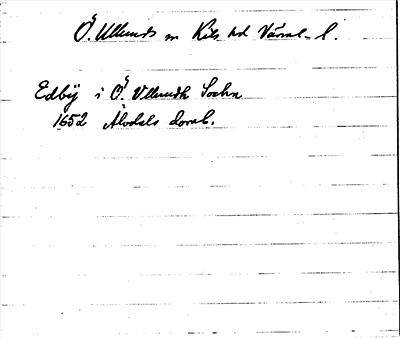 Ö. Ullerud sn Kils hd Värml. l.
Edbÿ i Ö. Vllerudh Sochn
1652 Älvdals domb.